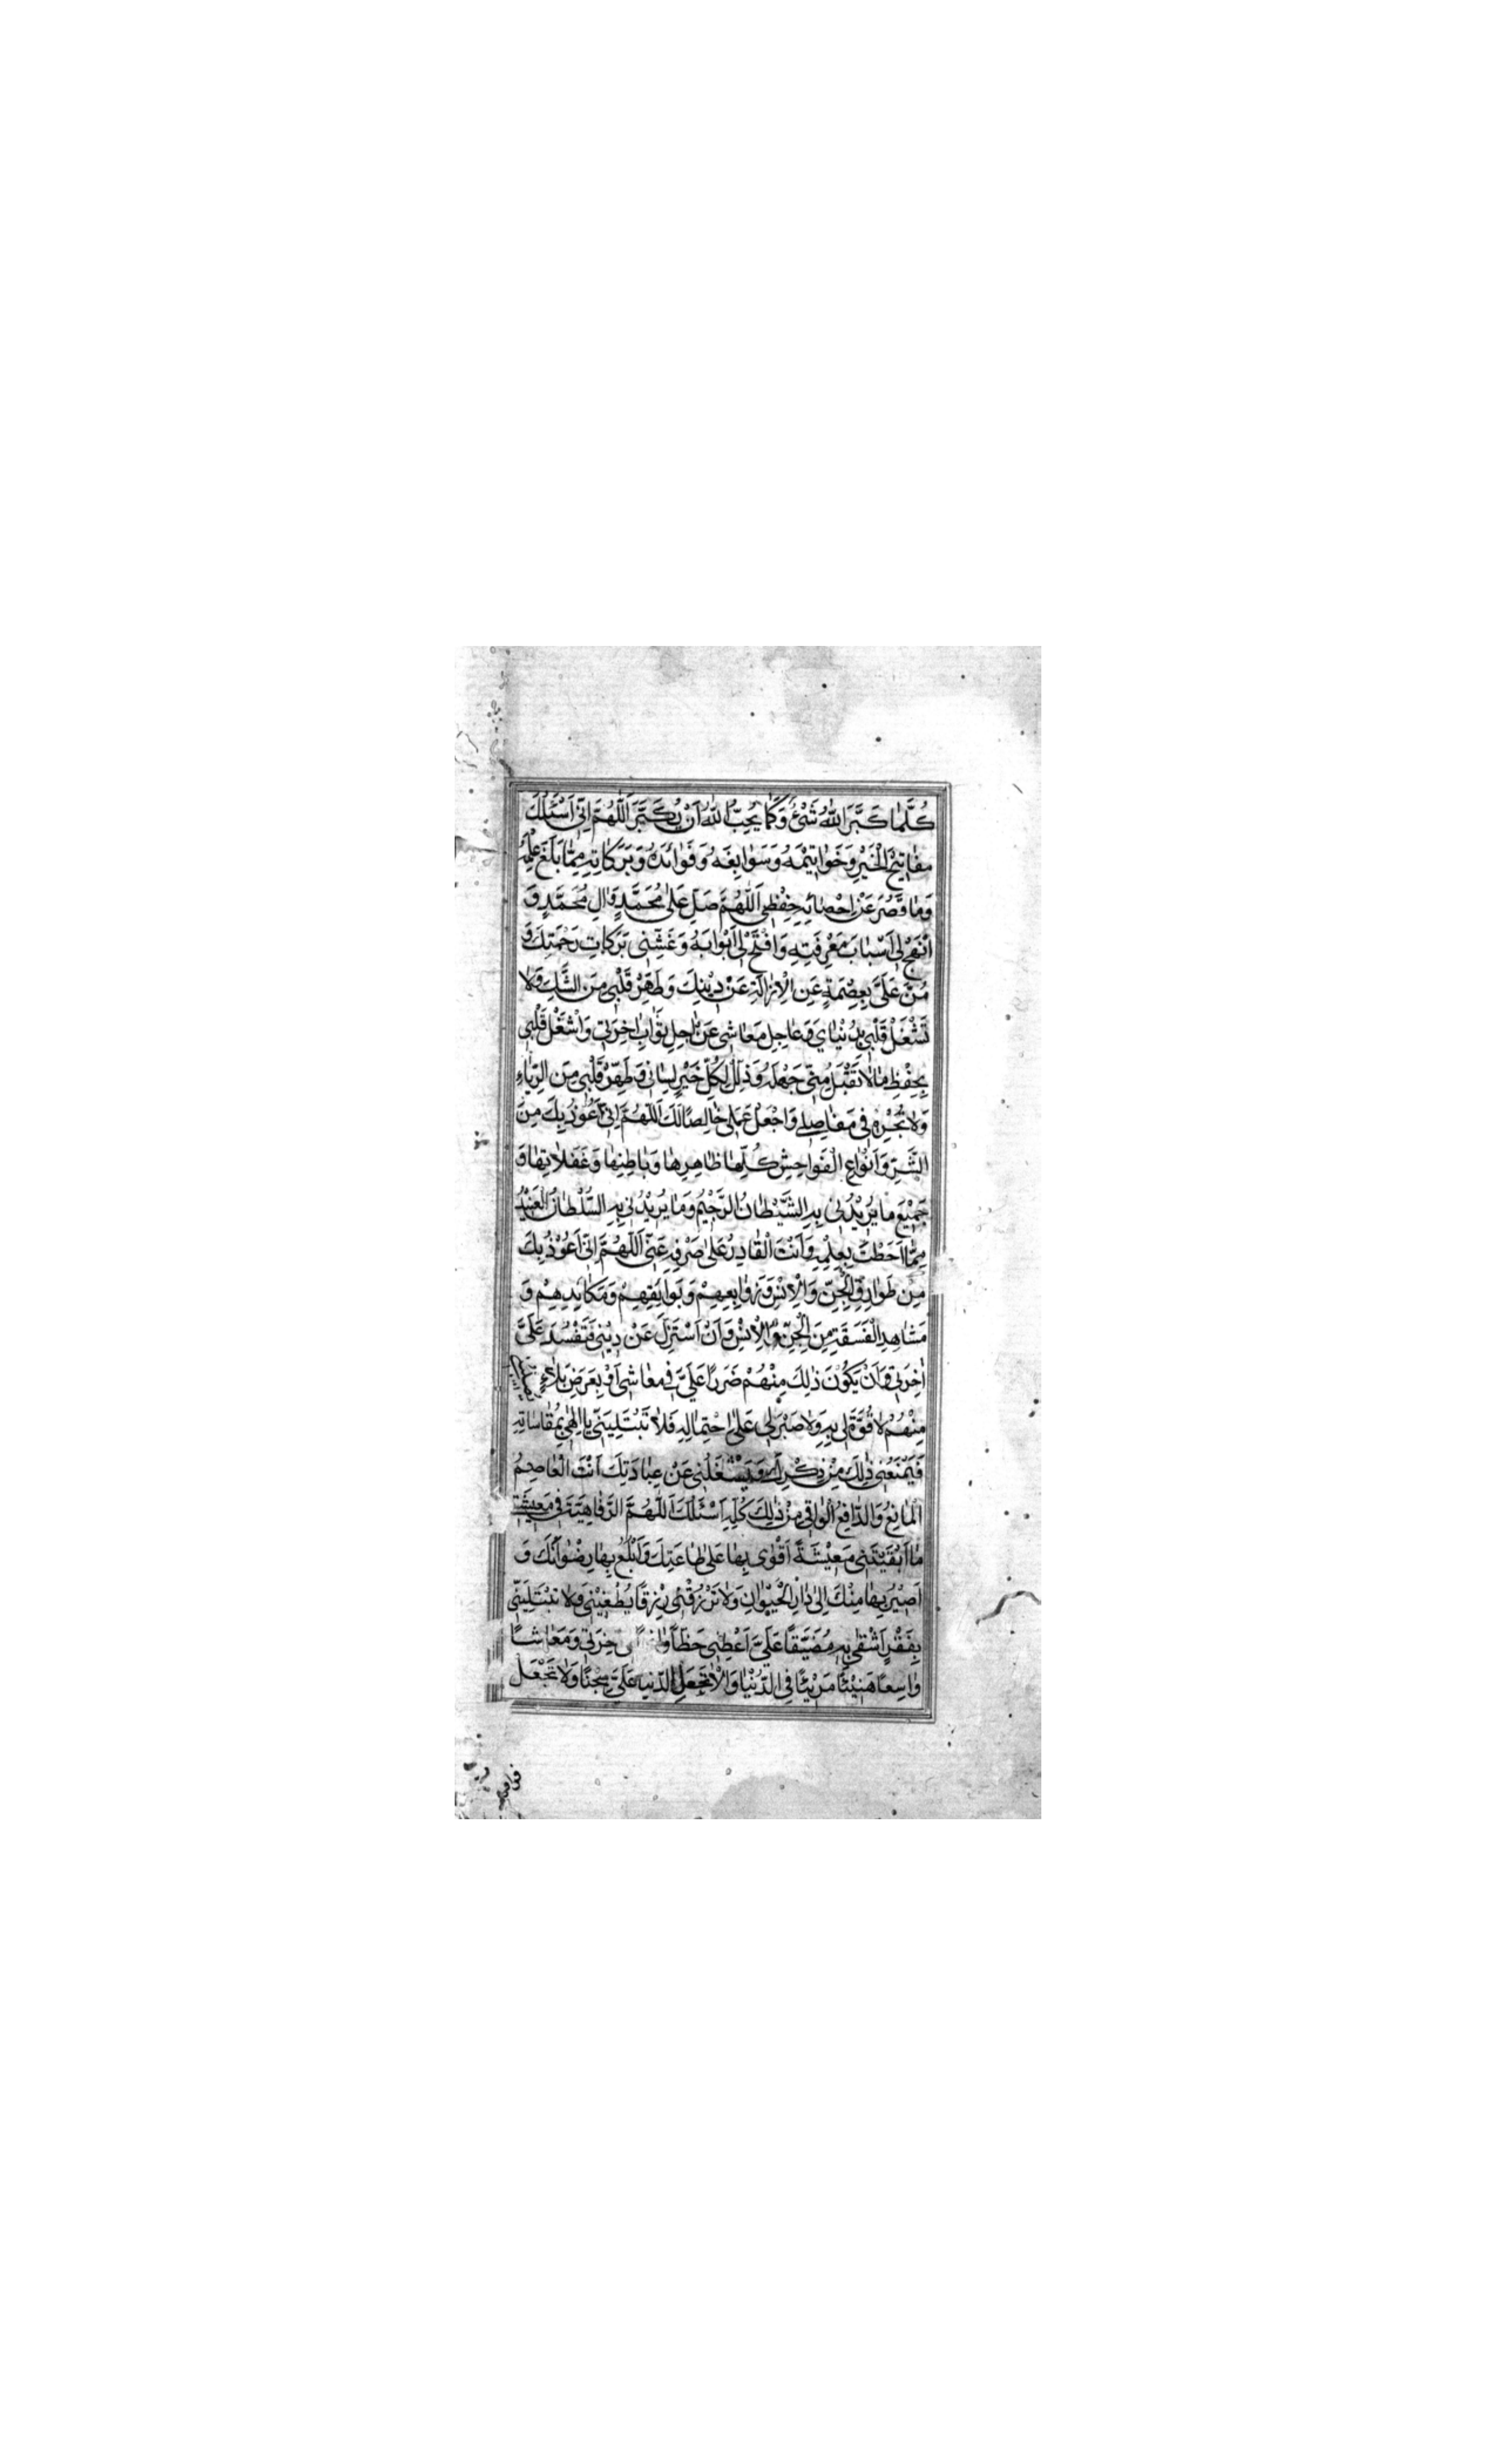 كُلَّمَا كَبَّرَ اللهُ شَيْئٌ وَكَمَا يُحِبُّ اللهُ اَنْ يُكَبَّرَ اَللّٰهُمَّ اِنّى اَسْئَلُكَ
مَفَاتِيْحَ الْخَيْرِ وَخَوَاتِيْمَهُ وَسَوَابِغَهُ وَفَوَائِدَهُ وَبَرَكَاتِهِ مِمَّا بَلَغَ عِلْمَهُ
وَمَا قَصُرَ عَنْ اِحْصَائِهِ حِفْظِى اَللّٰهُمَّ صَلِّ عَلٰى مُحَمَّدٍ وَاٰلِ مُحَمَّدٍ وَ
انْهَجْ لِى اَسْبَابَ مَعْرِفَتِهِ وَافْتَحْ لِى اَبْوَابَهُ وَغَشِّنِى بَرَكَاتِ رَحْمَتِكَ وَ
مُنَّ عَلَىَّ بِعِصْمَةٍ عَنِ الْاِزَالَةِ عَنْ دِيْنِكَ وَطَهِّرْ قَلْبِى مِنَ الشَّكِ وَلَا
تَشْغَلْ قَلْبِى بِدُنْيَاىَ وَعَاجِلِ مَعَاشِى عَنْ اٰجِلِ ثَوَابِ اٰخِرَتِى وَاشْغَلْ قَلْبِى
بِحِفْظِ مَا لَا تَقْبَلُ مِنِّى جَهْلَهُ وَذَلِّلْ لِكُلِّ خَيْرٍ لِسَانِى وَطَهِّرْ قَلْبِى مِنَ الرِّيَاءِ
وَلَا تُجْرِهِ فِى مَفَاصِلِى وَاجْعَلْ عَمَلِى خَالِصًا لَكَ اَللّٰهُمَّ اِنّى اَعُوْذُ بِكَ مِنَ
الشَّرِّ وَاَنْوَاعِ الْفَوَاحِشِ كُلِّهَا ظَاهِرِهَا وَبَاطِنِهَا وَغَفَلَاتِهَا وَ
جَمِيْعِ مَا يُرِيْدُنِى بِهِ الشَّيْطَانُ الرَّجِيْمُ وَمَا يُرِيْدُنِى بِهِ السُّلْطَانُ الْعَنِيْدُ
مِمَّا اَحَطْتَ بِعِلْمِهِ وَاَنْتَ الْقَادِرُ عَلٰى صَرْفِهِ عَنِّى اَللّٰهُمَّ اِنّى اَعُوْذُ بِكَ
مِنْ طَوَارِقِ الْجِنِّ وَالْاِنْسِ وَزَوَابِعِهِمْ وَبَوَائِقِهِمْ وَمَكَائِدِهِمْ وَ
مَشَاهِدِ الْفَسَقَةِ مِنَ الْجِنِّ وَالْاِنْسِ وَاَنْ اُسْتَزَلَّ عَنْ دِيْنِى فَتَفْسُدَ عَلَىَّ
اٰخِرَتِى وَاَنْ يَكُوْنَ ذٰلِكَ مِنْهُمْ ضَرَرًا عَلَىَّ فِى مَعَاشِى اَوْ بِعَرَضِ بَلَاءٍ
مِنْهُمْ لَا قُوَّةَ لِى بِهِ وَلَا صَبْرَ لِى عَلٰى احْتِمَالِهِ فَلَا تَبْتَلِيَنِّى يَا اِلٰهِى بِمُقَاسَاتِهِ
فَيَمْنَعُنِى ذٰلِكَ مِنْ ذِكْرِكَ وَيَشْغَلُنِى عَنْ عِبَادَتِكَ اَنْتَ الْعَاصِمُ
الْمَانِعُ وَالدَّافِعُ الْوَاقِى مِنْ ذٰلِكَ كُلِّهِ اَسْئَلُكَ اَللّٰهُمَّ الرَّفَاهِيَّةَ فِى مَعِيْشَتِى
مَا اَبْقَيْتَنِى مَعِيْشَةً اَقْوٰى بِهَا عَلٰى طَاعَتِكَ وَاَبْلُغُ بِهَا رِضْوَانَكَ وَ
اَصِيْرُ بِهَا مِنْكَ اِلٰى دَارِ الْحَيَوَانِ وَلَا تَرْزُقْنِى رِزْقًا يُطْغِيْنِى وَلَا تَبْتَلِيَنِّى
بِفَقْرٍ اَشْقٰى بِهِ مُضَيَّقًا عَلَىَّ اَعْطِنِى حَظًّا وَافِرًا فِى اٰخِرَتِى وَمَعَاشًا
وَاسِعًا هَنِيْئًا مَرِيْئًا فِى الدُّنْيَا وَلَا تَجْعَلِ الدُّنْيَا عَلَىَّ سِجْنًا وَلَا تَجْعَلْ